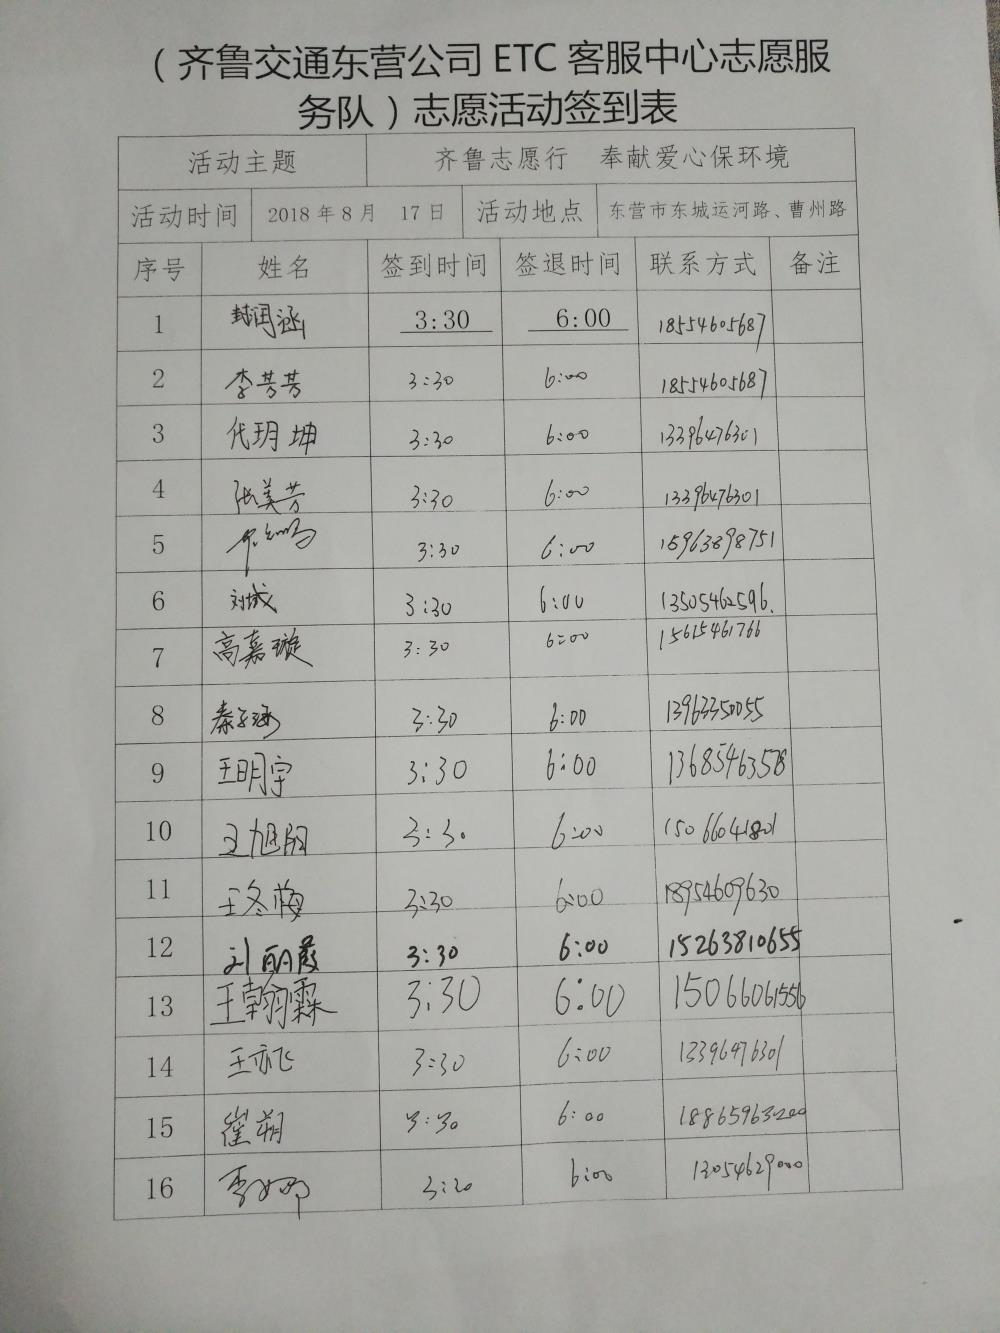 （齐鲁交通东营公司 ETC 客服中心志愿服
务队）志愿活动签到表
活动主题 齐鲁志愿行 奉献爱心保环境
活动时间 2018 年 8 月 17 日 活动地点 东营市东城运河路、曹州路
序号 姓名 签到时间 签退时间 联系方式 备注
1 封润涵 3:30 6:00 18554605687
2 李芳芳 3:30 6:00 18554605687
3 代玥坤 3:30 6:00 13396476301
4 张美芳 3:30 6:00 13396476301
5 3:30 6:00 15963898751
6 刘城 3:30 6:00 13505462596.
7 高嘉璇 3:30 6:00 15615461766
8 秦子涵 3:30 6:00 13963350055
9 王明宇 3:30 6:00 13685463578
10 王旭阳 3:30 6:00 15066041801
11 王冬梅 3:30 6:00 18954609630
12 刘丽霞 3:30 6:00 15263810655
13 王翰霖 3:30 6:00 15066061556
14 王亦飞 3:30 6:00 13396476301
15 崔朔 3:30 6:00 18865963200
16 李 3:30 6:00 13054629000